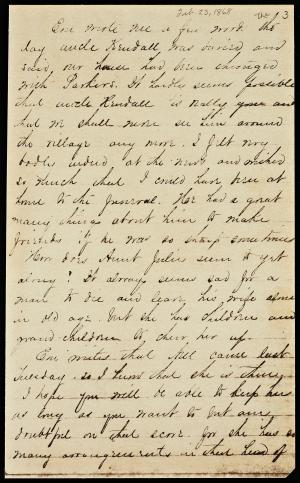 Feb 23, 1868
3
Em wrote me a few words the
day uncle Kendall was buried and
said our house had been changed
with Parkers. It hardly seems possible
that uncle Kendall is really gone and
that we shall never see him around
the village any more. I felt very
badly indeed at the news and wished
so much that I could have been at
home to the funeral. He had a great
many things about him to make
friends if he was so sharp sometimes
How does Aunt Julia seem to get
along? It always seems sad for a
man to die and leave his wife alone
in old age. but she has children and
grand children to cheer her up.
Em writes that Nell came last
Tuesday. so I know that she is there
I hope you will be able to keep her
as long as you want to but am
doubtful on that score. for she has so
many arrangements in that head of